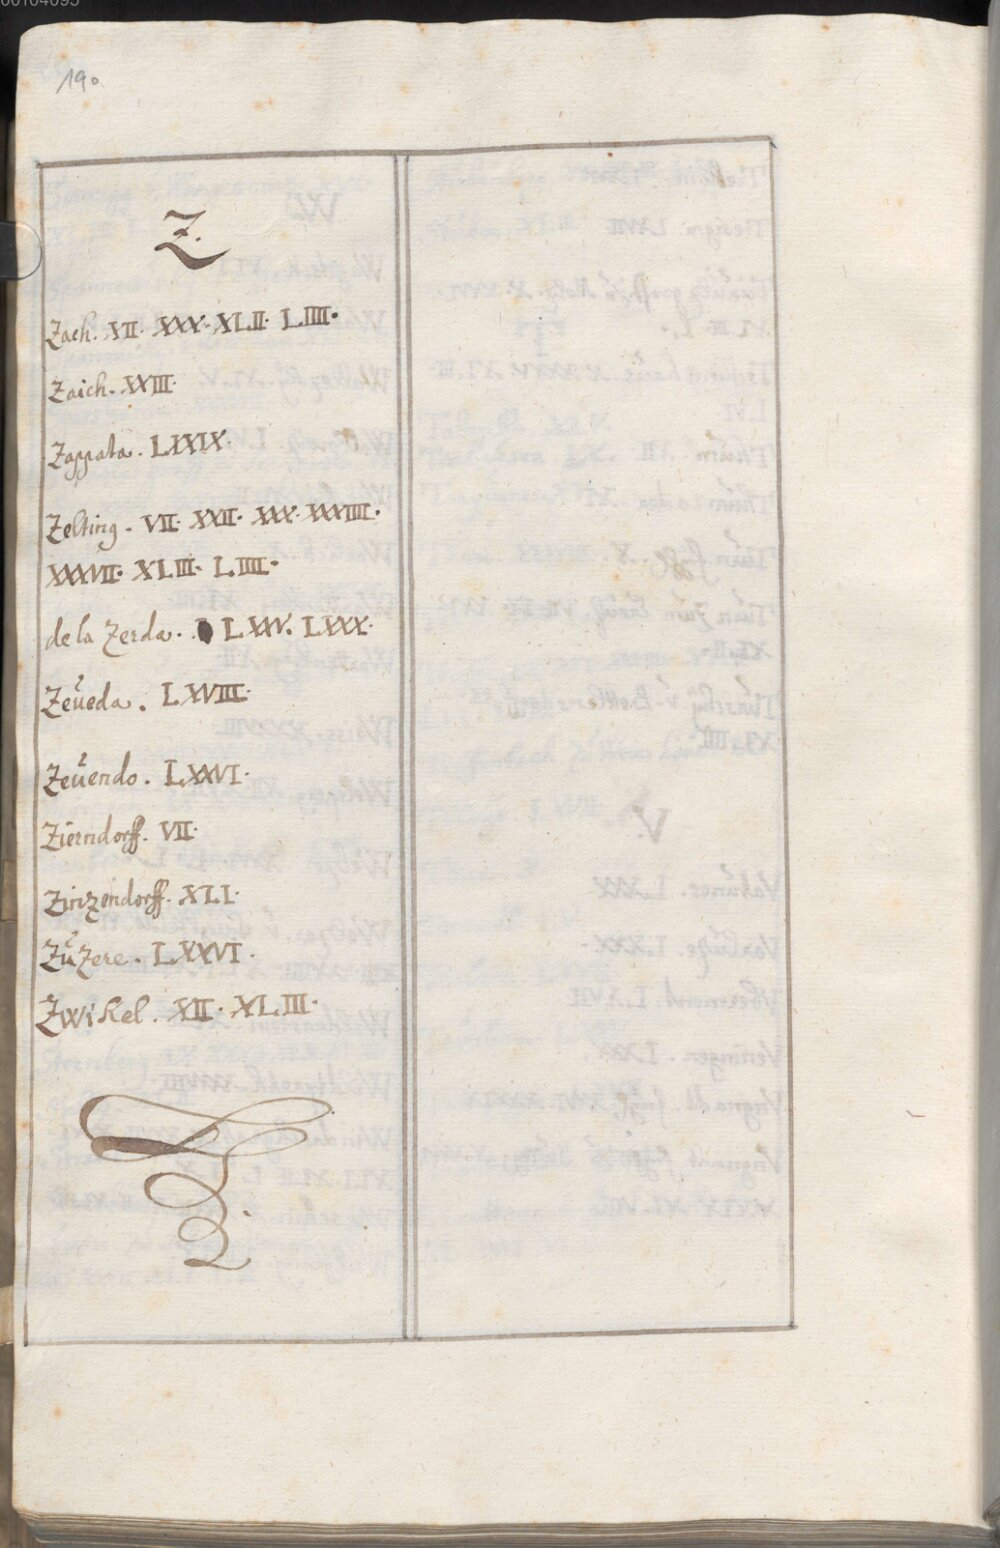 00104095
190
Z.
Zach. XII. XXX. XLII. LIIII.
Zaich. XXIII.
Zappata. LXXIX.
Zelting. VII. XXII. XXX. XXXIIII.
XXXVII. XLIII. LIIII.
de la Zerda. LXXV. LXXX.
Zeueda. LXVIII.
Zeuendo. LXXVI.
Zierndorff. VII.
Zinzendorff. XLI.
Zuzere. LXXVI.
Zwikel. XII. XLIII.